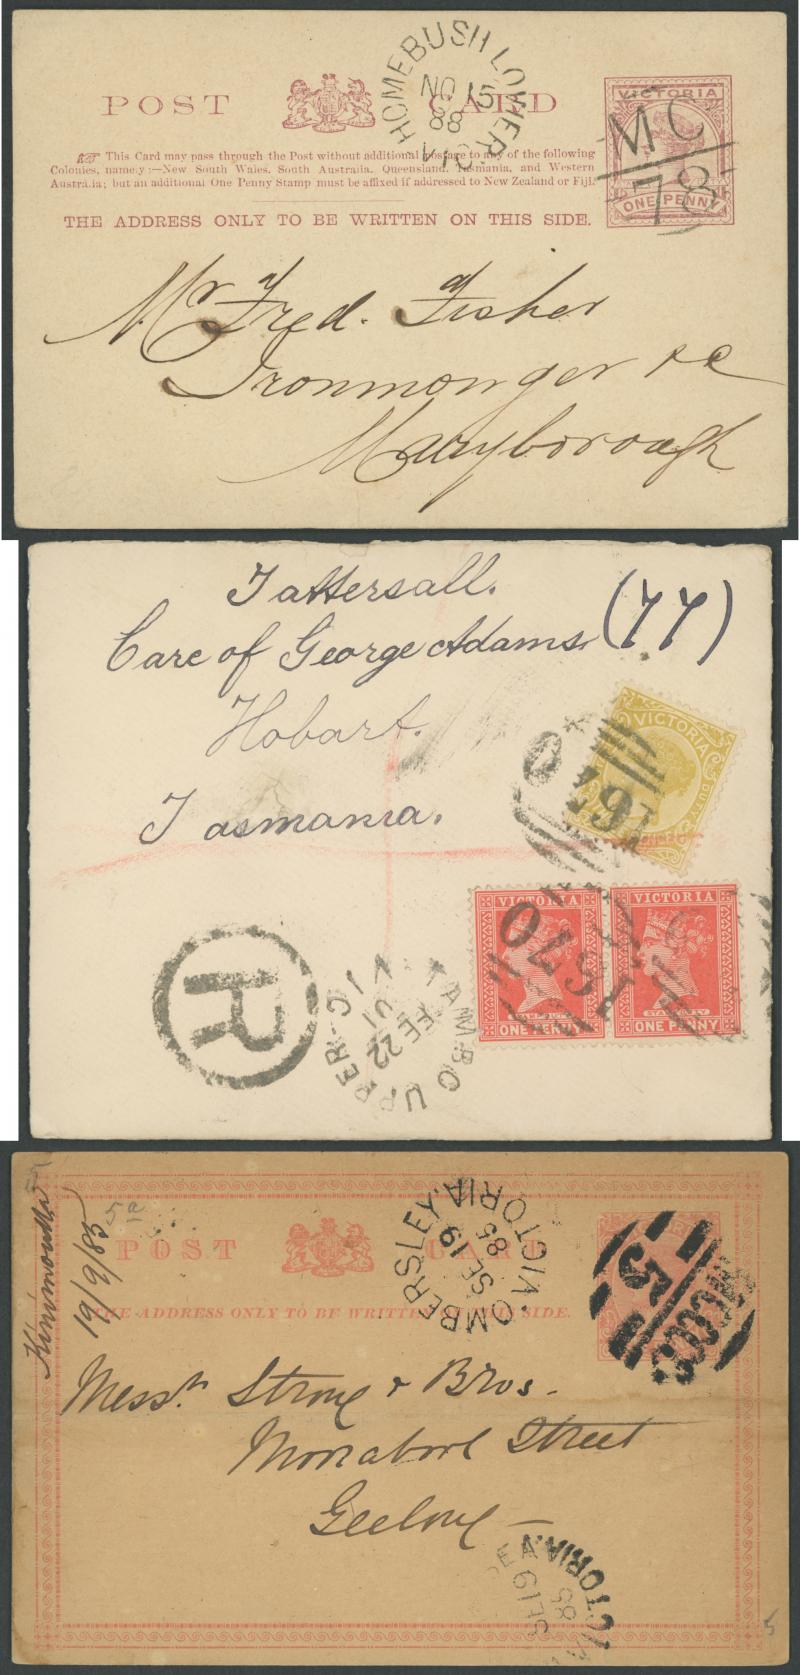 HOMEBUSH LOWER
NO 15
88
VIC
POST CARD
VICTORIA
ONE PENNY
MC
78
This Card may pass through the Post without additional postage to any of the following
Colonies, namely:—New South Wales, South Australia, Queensland, Tasmania, and Western
Australia; but an additional One Penny Stamp must be affixed if addressed to New Zealand or Fiji.
THE ADDRESS ONLY TO BE WRITTEN ON THIS SIDE.
Mr Fred. Fisher
Ironmonger &c
Maryborough
Tattersall.
(77)
Care of George Adams.
Hobart.
Tasmania.
VICTORIA
VICTORIA
VICTORIA
ONE PENNY
ONE PENNY
1570
R
TAMBO UPPER
FE 22
01
VIC
5a
19/9/85
POST CARD
OMBERSLEY.
VICTORIA
SE 19
85
5
THE ADDRESS ONLY TO BE WRITTEN ON THIS SIDE.
Messrs Strong & Bros.
Moorabool Street
Geelong
VICTORIA
SE 19
85
5